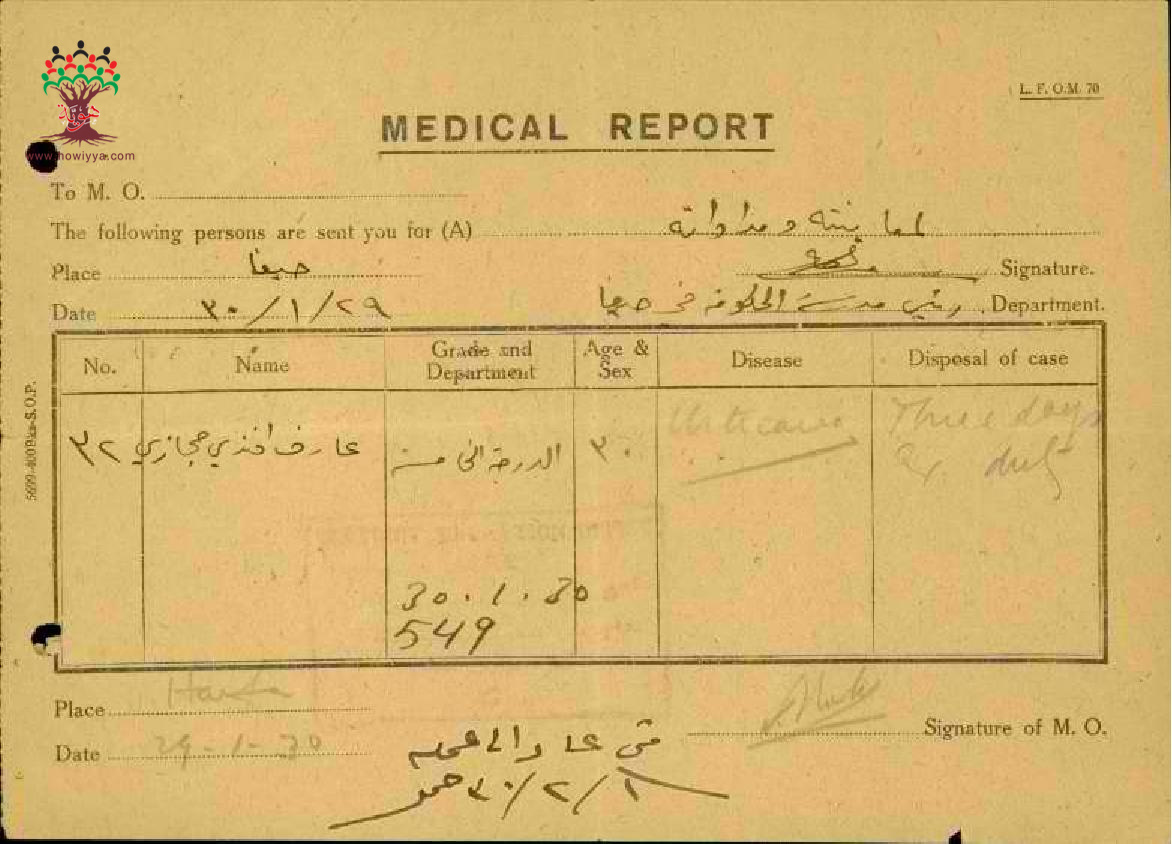 www.howiyya.com
L. F. O.M. 70
MEDICAL REPORT
To M. O.
The following persons are sent you for (A) لمعاينته ومداواته
Place حيفا Signature.
Date ٣٠/١/٢٩ رئيس مدرسة الحكومة في حيفا Department.
No. Name Grade and Department Age & Sex Disease Disposal of case
٣٢ عارف افندي حجازي الدرجة الخامسة ٣٠ Urticaria Three days
duty
30.1.30
549
Place Haifa
Signature of M. O.
Date 29-1-30
متى عاد الى عمله